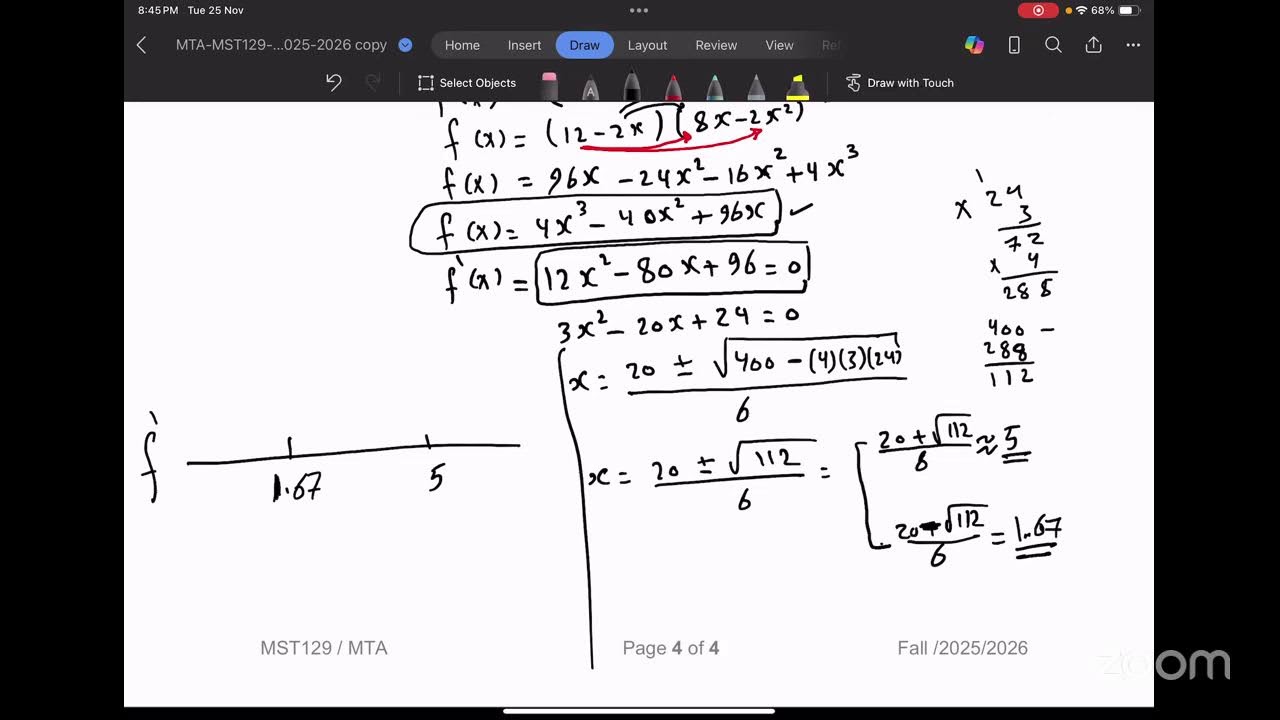 8:45 PM Tue 25 Nov
68%
MTA-MST129-...025-2026 copy Home Insert Draw Layout Review View
Select Objects A Draw with Touch
f (x) = (12 - 2x) (8x - 2x²)
f (x) = 96x - 24x² - 16x² + 4x³
f (x) = 4x³ - 40x² + 96x ✓
f'(x) = 12x² - 80x + 96 = 0
3x² - 20x + 24 = 0
x = 20 ± √400 - (4)(3)(24) / 6
x = 20 ± √112 / 6 =
20 + √112 / 6 ≈ 5
20 - √112 / 6 = 1.67
1
x 24
3
72
x 4
288
400 -
288
112
f'
1.67 5
MST129 / MTA Page 4 of 4 Fall /2025/2026
zoom